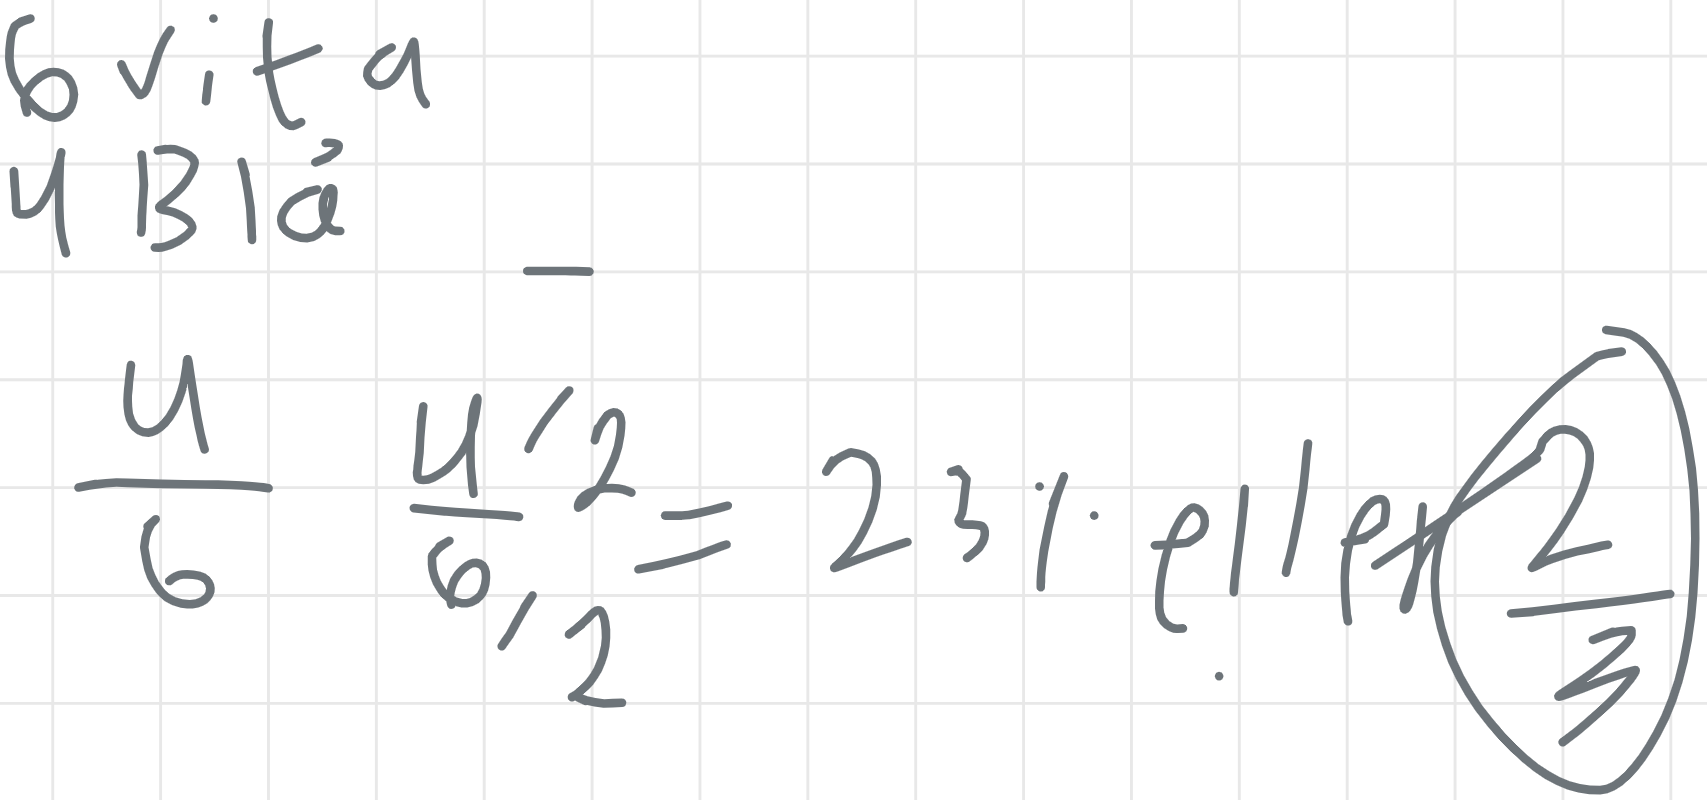 6 vita
4 Blå
4/6 4/2 / 6/2 = 23% eller 2/3